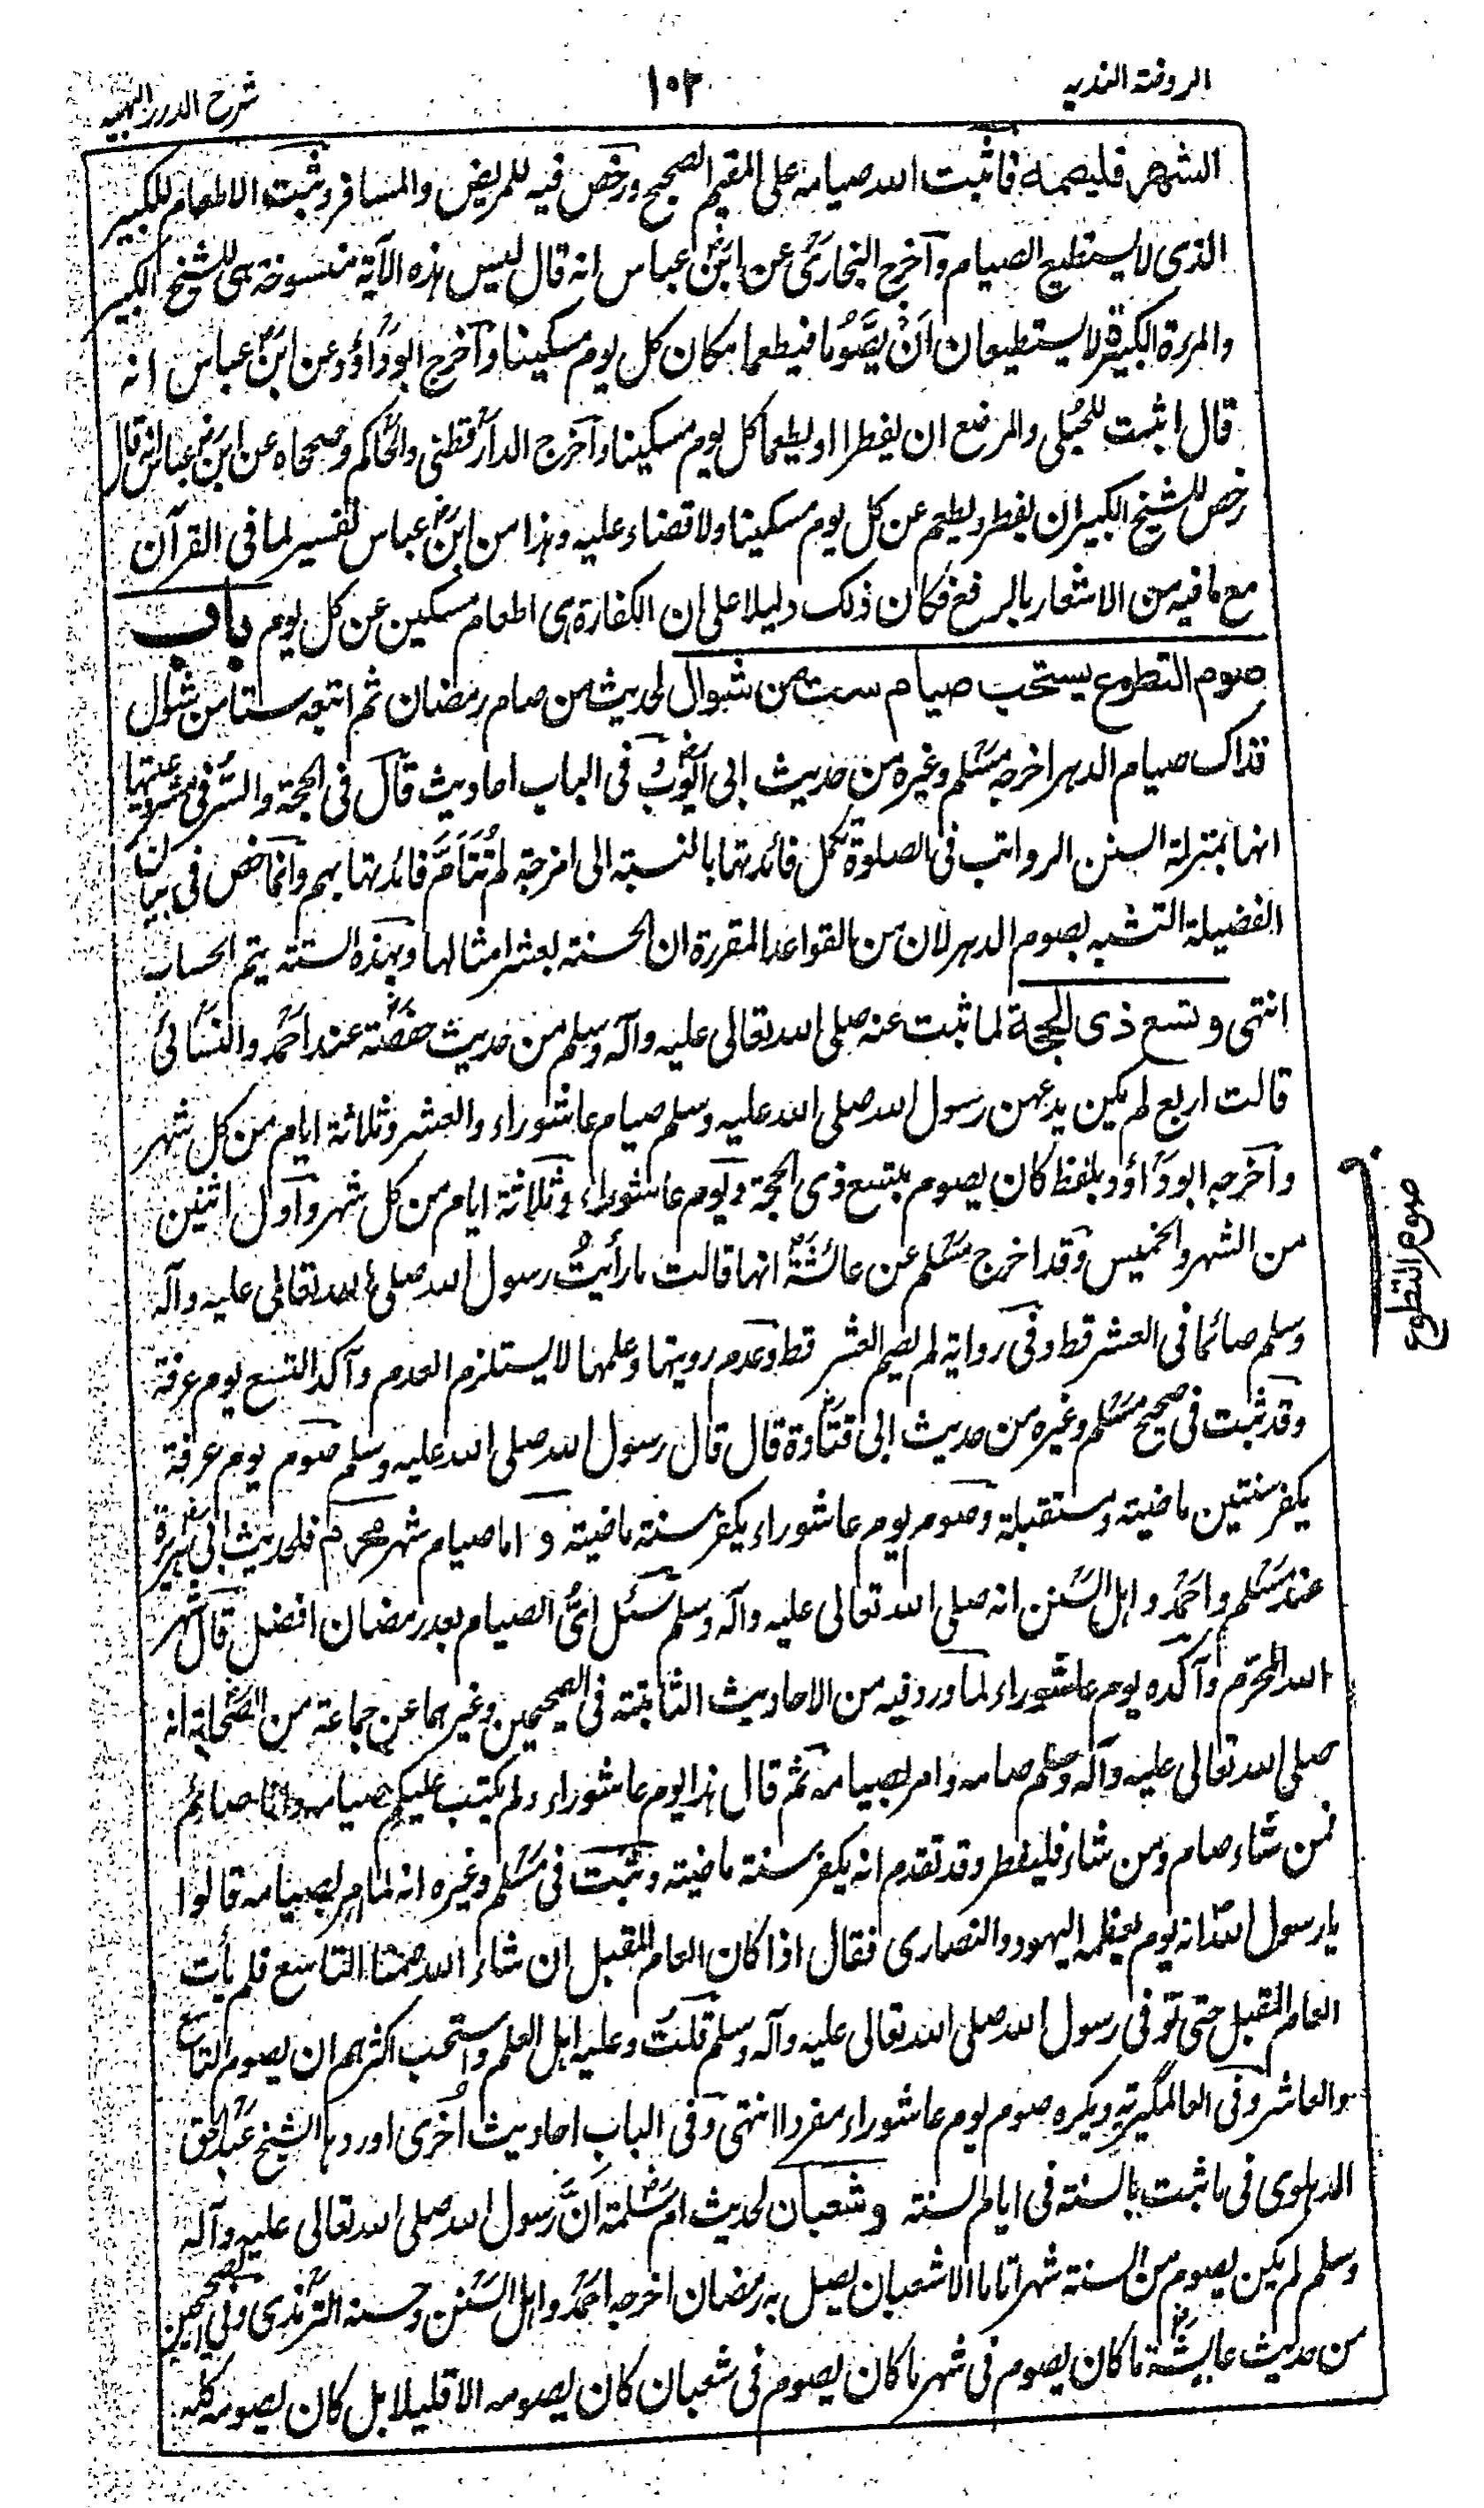 الروضة الندية
١٠٢
شرح الدرر البهية
الشهر فليصمه فاثبت الله صيامه على المقيم الصحيح ورخص فيه للمريض والمسافر وثبت الاطعام للكبير
الذى لا يستطيع الصيام وآخرج البخارى عن ابن عباس انه قال ليس هذه الآية منسوخة هى للشيخ الكبير
والمرءة الكبيرة لا يستطيعان اَنْ يَّصُوما فيطعما مكان كل يوم مسكينا وآخرج ابوداؤد عن ابن عباس انه
قال اثبت للحبلى والمرضع ان يفطرا اويطعما كل يوم مسكينا وآخرج الدارقطنى والحاكم وصححاه عن ابن عباس انه قال
رخص للشيخ الكبير ان يفطر ويطعم عن كل يوم مسكينا ولا قضاء عليه وهذا من ابن عباس تفسير لما فى القرآن
مع ما فيه من الاشعار بالرفع فكان ذلك دليلا على ان الكفارة هى اطعام مسكين عن كل يوم باب
صوم التطوع يستحب صيام ست من شوال لحديث من صام رمضان ثم اتبعه ستا من شوال
فذاك صيام الدهر اخرجه مسلم وغيره من حديث ابى ايوب و فى الباب احاديث قال فى الحجة والسر فى مشروعيتها
انها بمنزلة السنن الرواتب فى الصلوة تكمل فائدتها بالنسبة الى امزجة لم تتامَّ فائدتها بهم وانما خص فى بيان
الفضيلة التشبه بصوم الدهر لان من القواعد المقررة ان الحسنة بعشر امثالها وبهذه الستة يتم الحساب
انتهى وتسع ذى الحجة لما ثبت عنه صلى الله تعالى عليه وآله وسلم من حديث حفصة عند احمد والنسائى
قالت اربع لم يكن يدعهن رسول الله صلى الله عليه وسلم صيام عاشوراء والعشر وثلاثة ايام من كل شهر
وآخرجه ابوداؤد بلفظ كان يصوم بتسع ذى الحجة ويوم عاشوراء وثلاثة ايام من كل شهر وآول اثنين
من الشهر والخميس وقد اخرج مسلم عن عائشة انها قالت ما رأيتُ رسول الله صلى الله تعالى عليه وآله
وسلم صائما فى العشر قط وفى رواية لم يصم العشر قط وعدم رويتها وعلمها لا يستلزم العدم وآكد التسع يوم عرفة
وقد ثبت فى صحيح مسلم وغيره من حديث ابى قتادة قال قال رسول الله صلى الله عليه وسلم صوم يوم عرفة
يكفر سنتين ماضية ومستقبلة وصوم يوم عاشوراء يكفر سنة ماضية و اما صيام شهر محرم فلحديث ابى هريرة
عند مسلم واحمد واهل السنن انه صلى الله تعالى عليه وآله وسلم سئل اىُّ الصيام بعد رمضان افضل قال شهر
الله المحرم وآكده يوم عاشوراء لما ورد فيه من الاحاديث الثابتة فى الصحيحين وغيرهما عن جماعة من الصحابة انه
صلى الله تعالى عليه وآله وسلم صامه وامر بصيامه ثم قال هذا يوم عاشوراء ولم يكتب عليكم صيامه وانا صائم
فمن شاء صام ومن شاء فليفطر وقد تقدم انه يكفر سنة ماضية وثبت فى مسلم وغيره انه لما امر بصيامه قالوا
يا رسول الله انه يوم يعظمه اليهود والنصارى فقال اذا كان العام المقبل ان شاء الله صمنا التاسع فلم يأت
العام المقبل حتى توفى رسول الله صلى الله تعالى عليه وآله وسلم قلت وعليه اهل العلم واستحب اكثرهم ان يصوم التاسع
والعاشر وفى العالمگيرية ويكره صوم يوم عاشوراء مفردا انتهى وفى الباب احاديث اُخرى اوردها الشيخ عبدالحق
الدهلوى فى ما ثبت بالسنة فى ايام السنة وشعبان لحديث ام سلمة اَنَّ رسول الله صلى الله تعالى عليه وآله
وسلم لم يكن يصوم من السنة شهرا تاما الا شعبان يصل به رمضان اخرجه احمد واهل السنن وحسنه الترمذى وفى الصحيحين
من حديث عايشة ما كان يصوم فى شهر ما كان يصوم فى شعبان كان يصومه الا قليلا بل كان يصومه كله
صوم التطوع